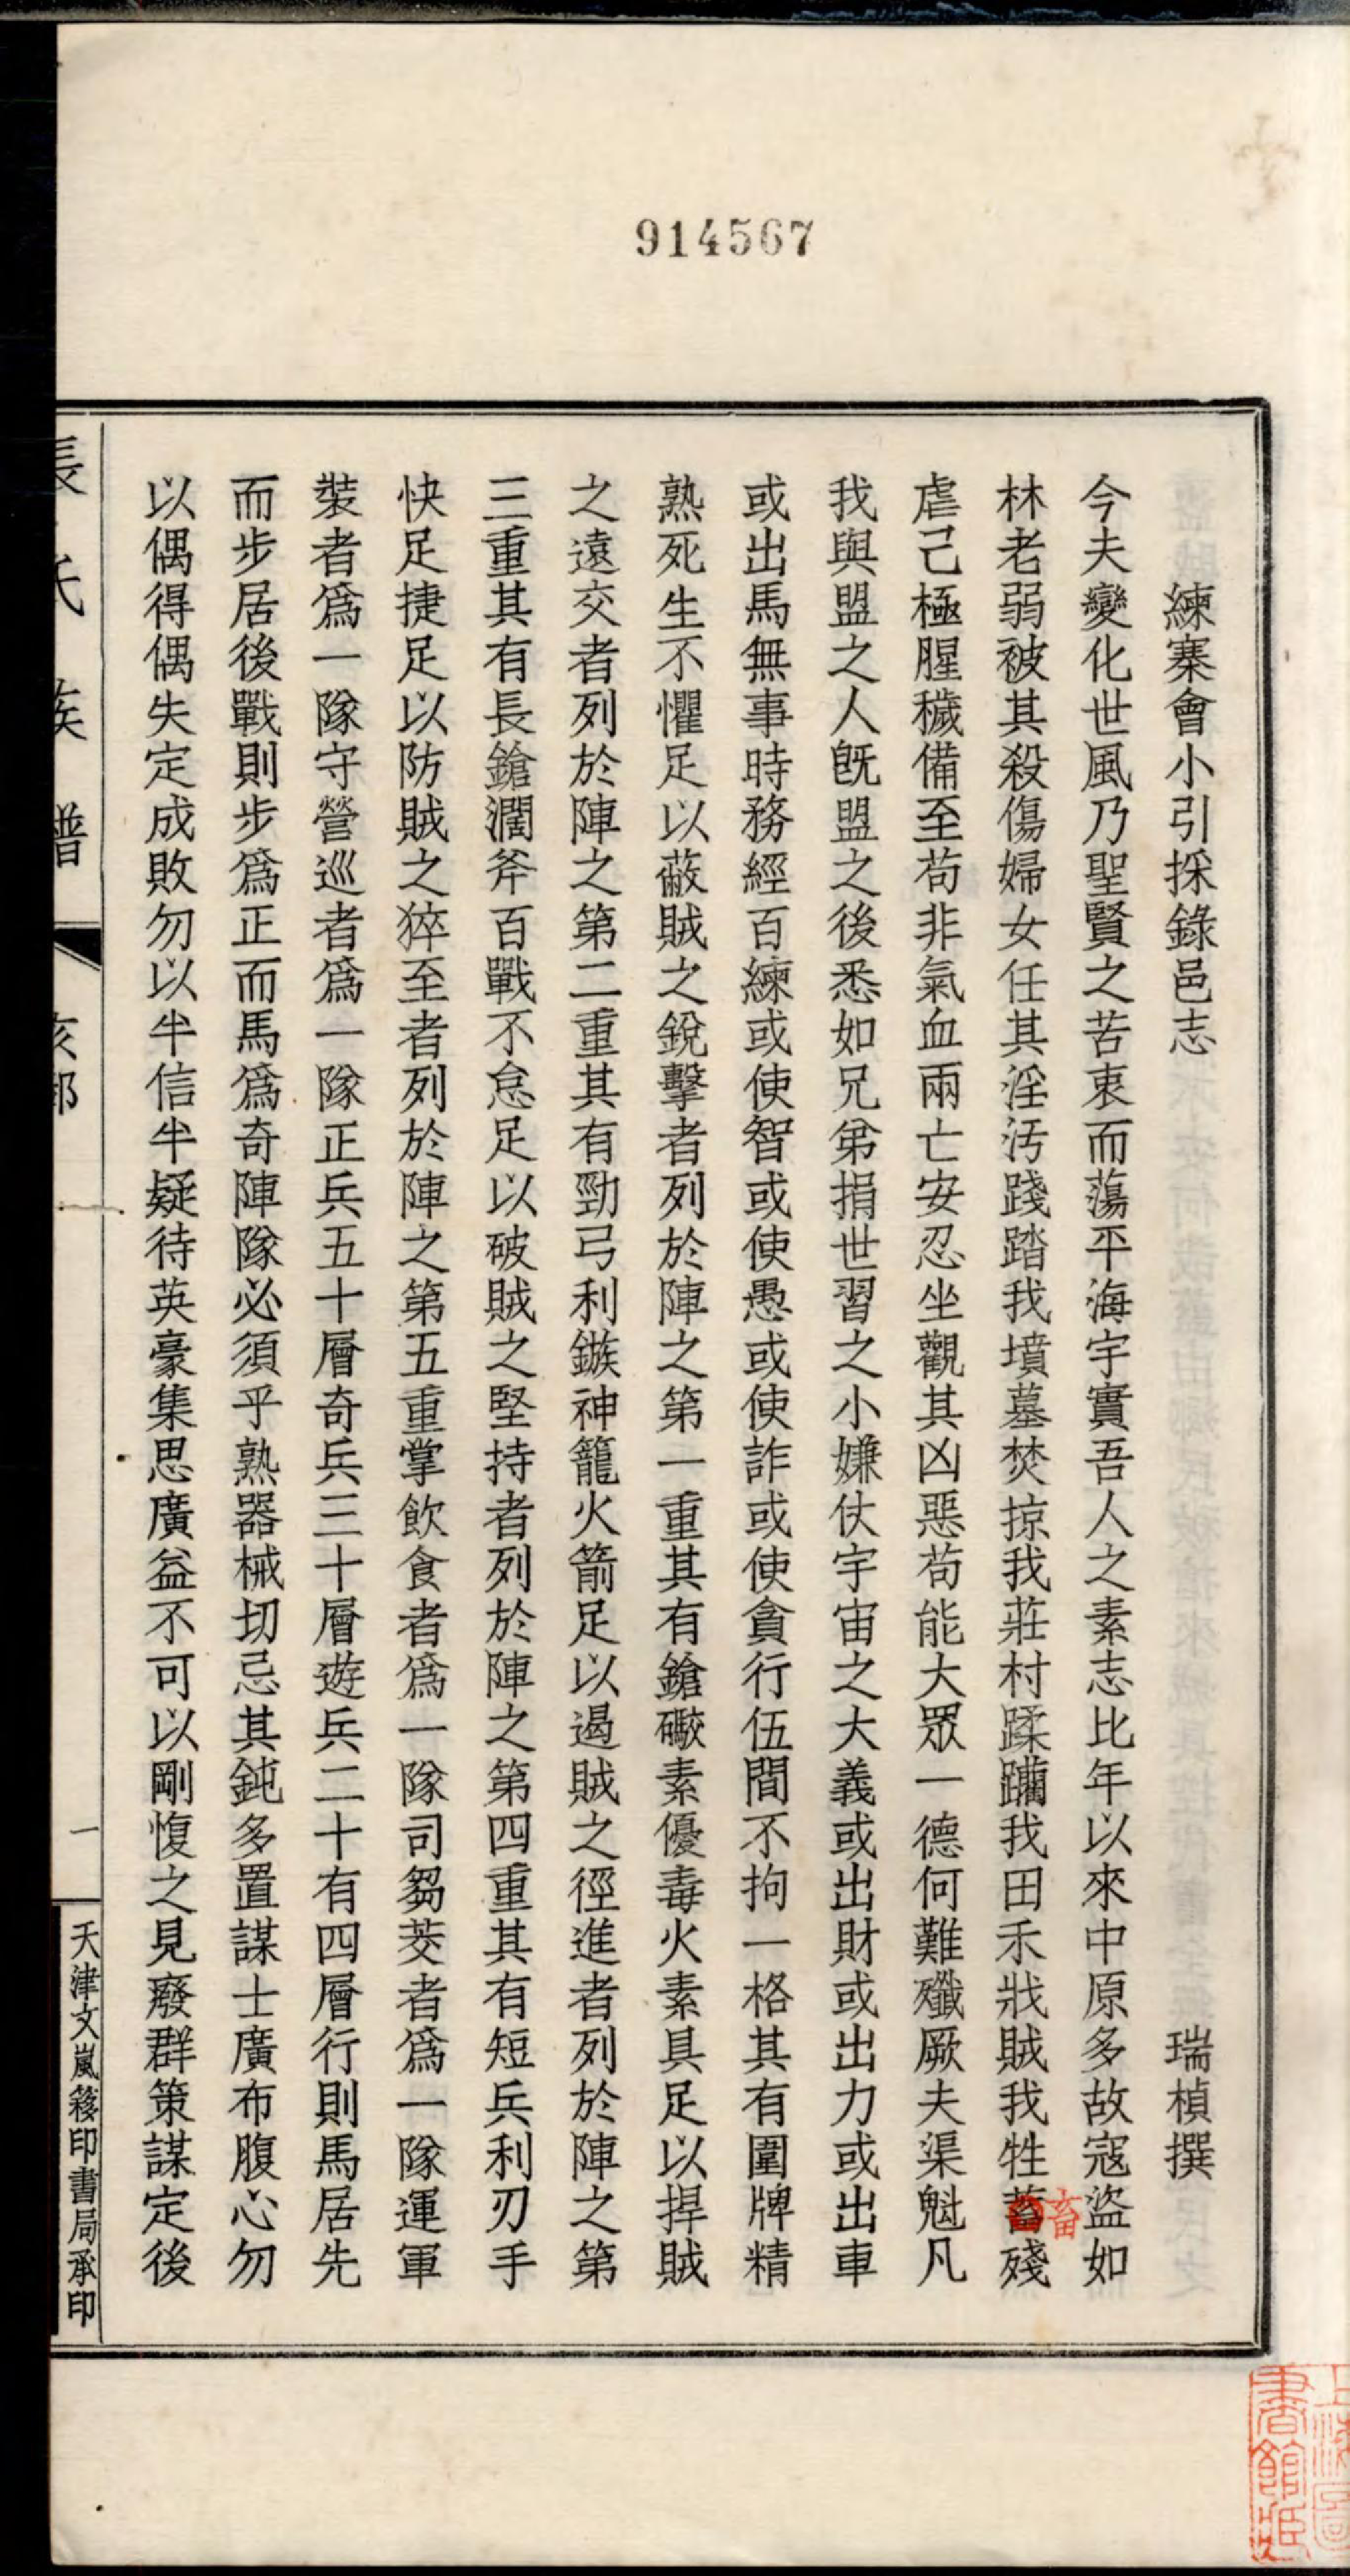 914567
練寨會小引採錄邑志 瑞楨撰
今夫變化世風乃聖賢之苦衷而蕩平海宇實吾人之素志比年以來中原多故寇盜如
林老弱被其殺傷婦女任其淫污踐踏我墳墓焚掠我莊村蹂躪我田禾戕賊我牲蓄殘
畜
虐已極腥穢備至苟非氣血兩亡安忍坐觀其凶惡苟能大眾一德何難殲厥夫渠魁凡
我與盟之人既盟之後悉如兄弟捐世習之小嫌仗宇宙之大義或出財或出力或出車
或出馬無事時務經百練或使智或使愚或使詐或使貪行伍間不拘一格其有圍牌精
熟死生不懼足以蔽賊之銳擊者列於陣之第一重其有鎗礮素優毒火素具足以捍賊
之遠交者列於陣之第二重其有勁弓利鏃神籠火箭足以遏賊之徑進者列於陣之第
三重其有長鎗濶斧百戰不怠足以破賊之堅持者列於陣之第四重其有短兵利刃手
快足捷足以防賊之猝至者列於陣之第五重掌飲食者爲一隊司芻茭者爲一隊運軍
裝者爲一隊守營巡者爲一隊正兵五十層奇兵三十層遊兵二十有四層行則馬居先
而步居後戰則步爲正而馬爲奇陣隊必須乎熟器械切忌其鈍多置謀士廣布腹心勿
以偶得偶失定成敗勿以半信半疑待英豪集思廣益不可以剛愎之見廢群策謀定後
長氏族譜 亥部 一
天津文嵐簃印書局承印